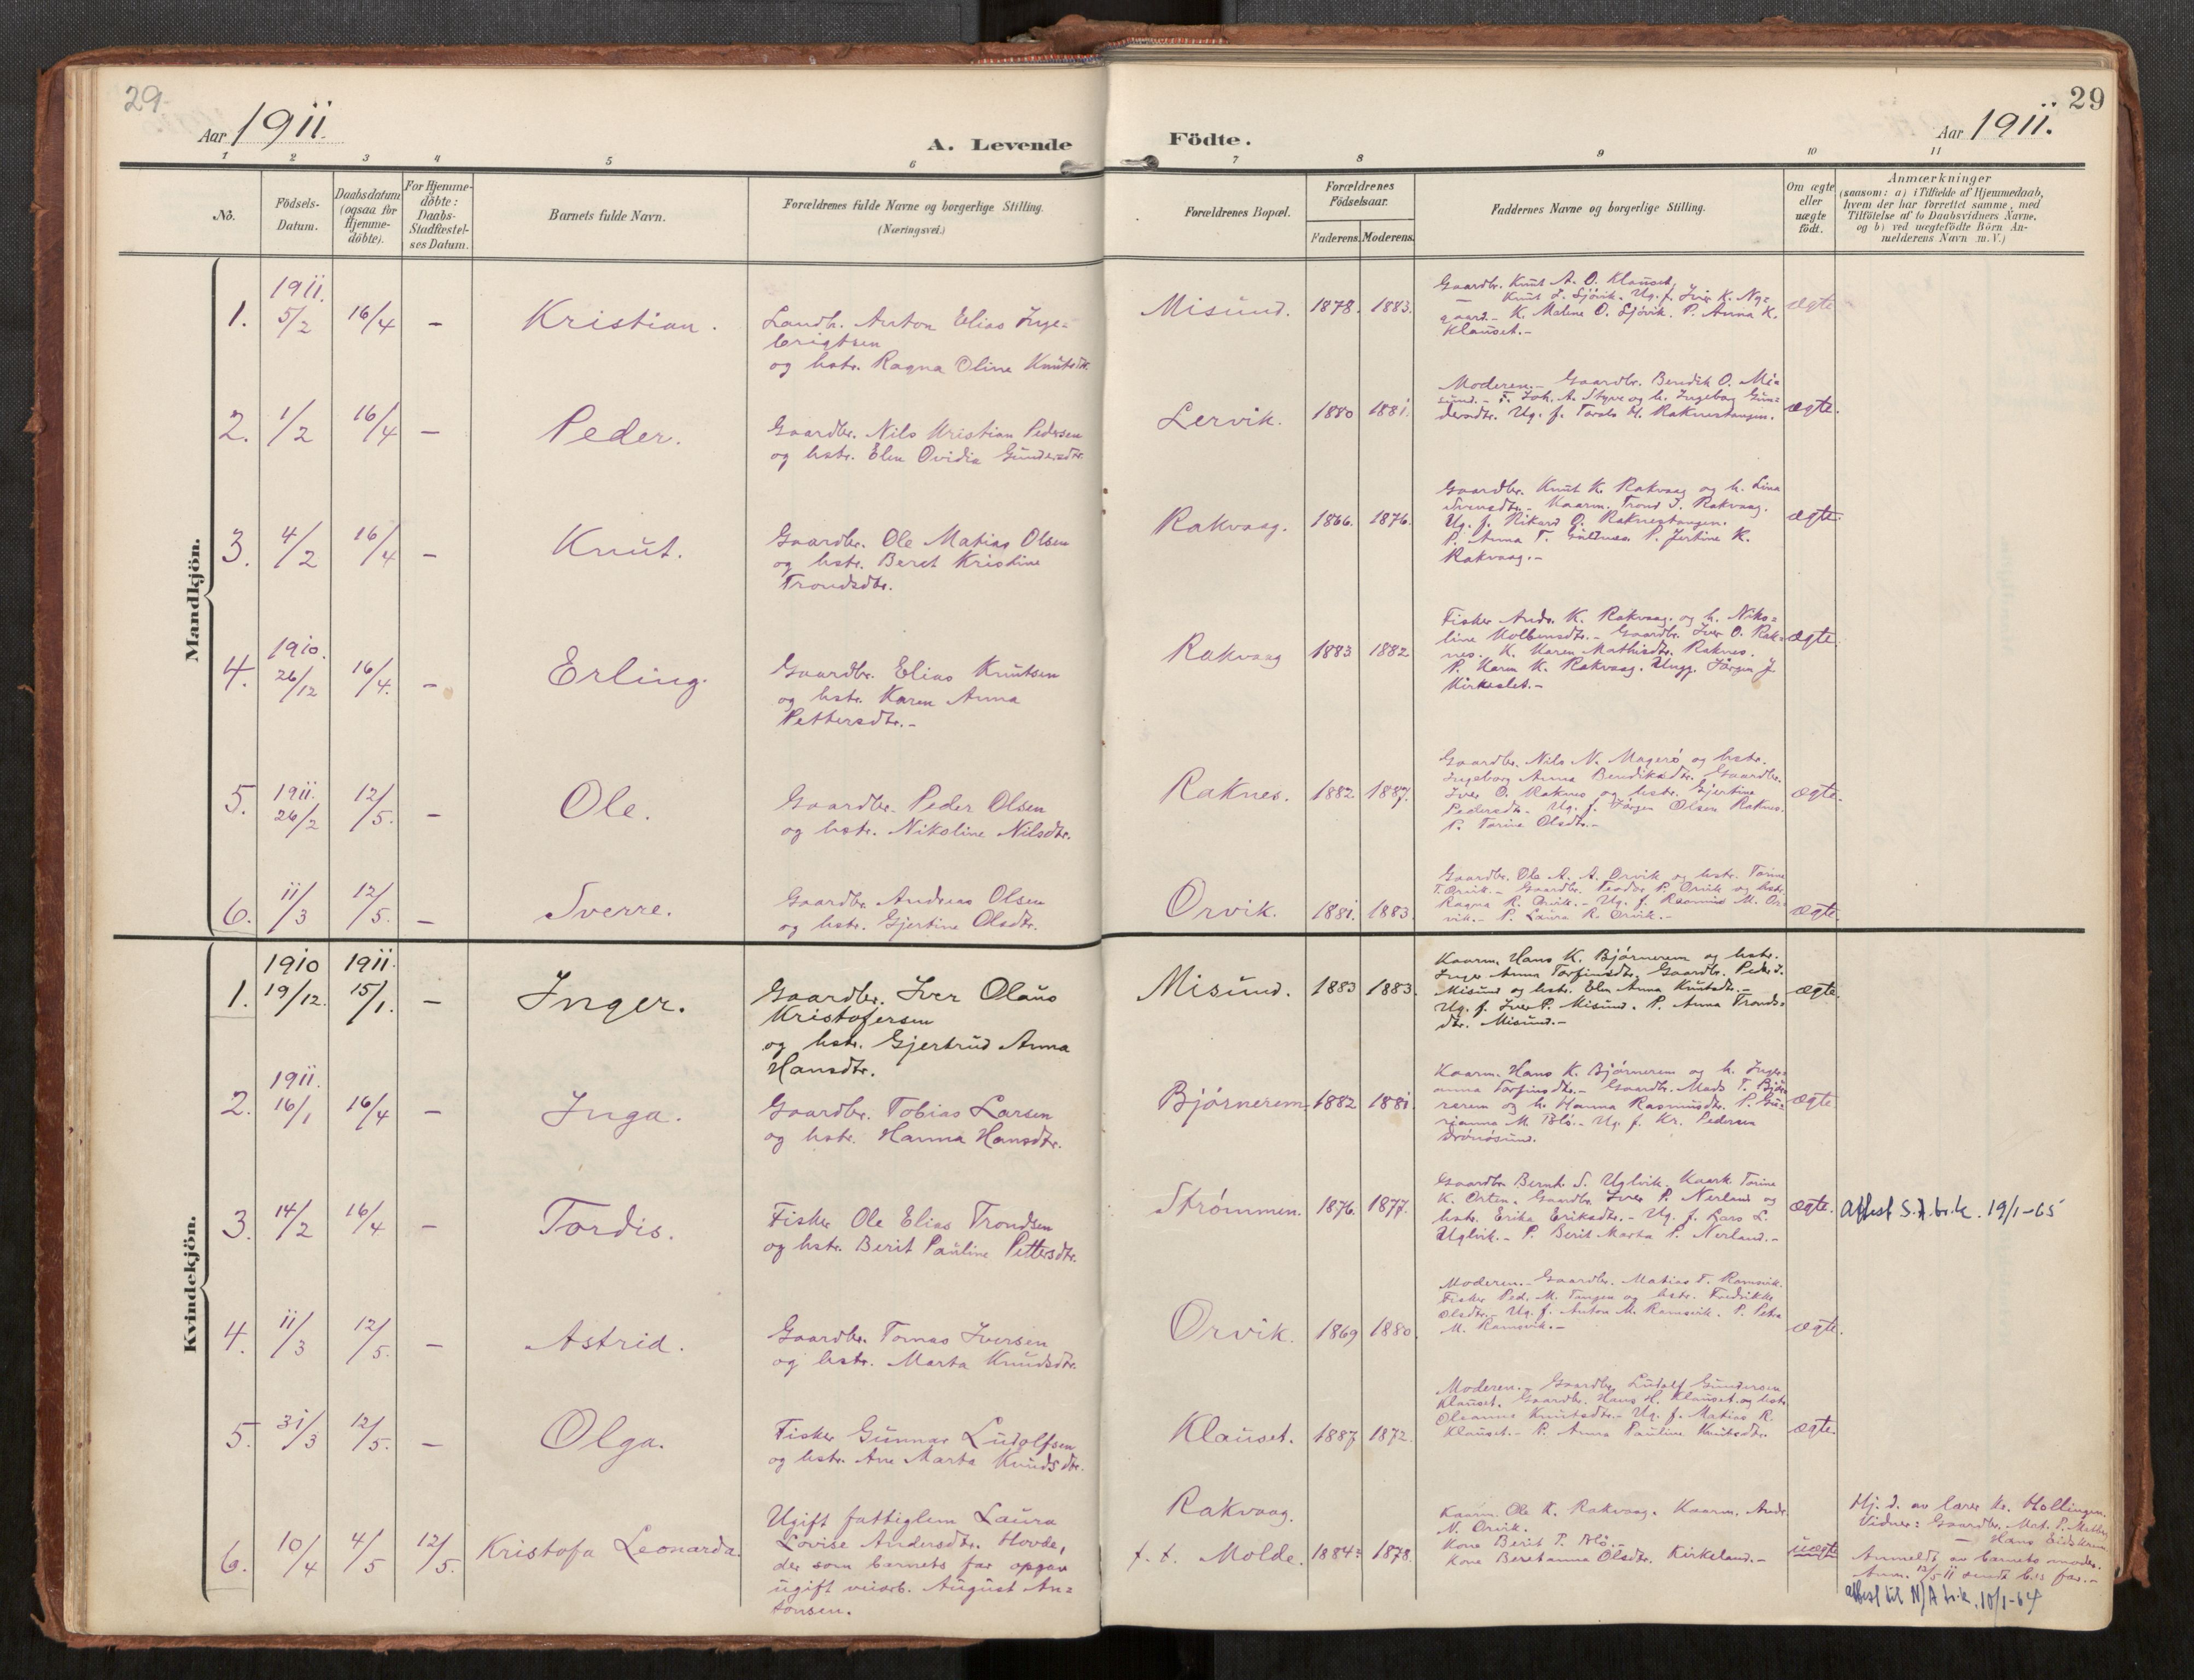 29.
29
Aar 1911.
A. Levende Födte.
Aar 1911.
1 2 3 4 5 6 7 8 9 10 11
No.
Födsels-Datum.
Daabsdatum (ogsaa for Hjemme-döbte).
For Hjemme-döbte: Daabs-Stadfæstel-ses Datum.
Barnets fulde Navn.
Forældrenes fulde Navne og borgerlige Stilling.
(Næringsvei.)
Forældrenes Bopæl.
Forældrenes Födselsaar.
Faderens. Moderens.
Faddernes Navne og borgerlige Stilling.
Om ægte eller uægte födt.
Anmærkninger
(saasom: a) i Tilfælde af Hjemmedaab,
hvem der har forrettet samme, med
Tilföielse af to Daabsvidners Navne,
og b) ved uægtefödte Börn An-
melderens Navn m.V.)
Mandkjön.
1. 1911. 5/2 16/4 – Kristian.
Landh. Anton Elias Inge=
brigtsen
og hstr. Ragna Oline Knutsdtr.
Misund. 1878. 1883.
Gaardbr. Knut A. O. Klauset,
— Knut L. Sjövik. Ug. f. Iver K. Ny=
gaard. K. Malene O. Sjövik. P. Anna K.
Klauset.–
ægte
2. 1/2 16/4 – Peder.
Gaardbr. Nils Kristian Pedersen
og hstr. Elen Ovidia Gundersdtr.
Lervik. 1880 1881.
Moderen.– Gaardbr. Bendik O. Mi=
sund.– F. Joh. A. Styve og h. Ingebog Gun=
dersdtr. Ug. f. Tarals H. Raknestangen.
ægte.
3. 4/2 16/4 – Knut.
Gaardbr. Ole Matias Olsen
og hstr. Beret Kristine
Trondsdtr.
Rakvaag. 1866. 1876.
Gaardbr. Knut K. Rakvaag og h. Lina
Svensdtr.. Kaarm. Trond I. Rakvaag.
Ug. f. Rikard O. Raknestangen.
P. Anna T. P. Jertine K.
Rakvaag.–
ægte.
4. 1910. 26/12 16/4. – Erling.
Gaardbr. Elias Knutsen
og hstr. Karen Anna
Pettersdtr.–
Rakvaag 1883 1882
Fisker Andr. K. Rakvaag. og h. Niko=
line Kolbensdtr.– Gaardbr. Iver O. Rak=
nes. K. Karen Mathisdtr. Raknes.
P. Karen K. Rakvaag. Ungg. Jörgen J
Kirkeslet.–
ægte.
5. 1911. 26/2 12/5. – Ole.
Gaardbr. Peder Olsen
og hstr. Nikoline Nilsdtr.
Raknes. 1882 1887.
Gaardbr. Nils N. Magerö og hstr.
Ingeborg Anna Bendiksdtr. Gaardbr.
Iver O. Raknes og hstr. Gjertine
Pedersdtr.. Ug. f. Jörgen Olsen Raknes.
P. Torine Olsdtr.–
ægte.
6. 11/3 12/5. – Sverre.
Gaardbr Andreas Olsen
og hstr. Gjertine Olsdtr.
Orvik. 1881. 1883.
Gaardbr. Ole A. A. Orvik og hstr. Torine
T. Orvik.– Gaardbr. Teodor P. Orvik og hstr.
Ragna R. Orvik.– Ug. f. Rasmus M. Or=
vik.– P. Laura R. Orvik.–
ægte.
Kvindekjön.
1. 1910 19/12. 1911. 15/1. – Inger.
Gaardbr. Iver Olaus
Kristofersen
og hstr. Gjertrud Anna
Hansdtr.
Misund. 1883 1883.
Kaarm. Hans K. Björnerem og hstr.
Inger Anna Torfinsdtr. Gaardbr. Peder J.
Misund og hstr. Elen Anna Knutsdtr.–
Ug. f. Iver P. Misund. P. Anna Tronds=
dtr. Misund.–
ægte.
2. 1911. 16/1 16/4 – Inga.
Gaardbr. Tobias Larsen
og hstr. Hanna Hansdtr.
Bjørnerem. 1882 1881.
Kaarm. Hans K. Björnerem og h. Inger=
anna Torfinsdtr.– Gaardbr. Mads T. Björ
nerem og h. Hanna Rasmusdtr. P. Gu=
rianna M. Blö.– Ug. f. Kr. Pedersen
Drönösund.
ægte
3. 14/2 16/4 – Tordis.
Fisker Ole Elias Trondsen
og hstr. Berit Pauline Pettersdtr.
Strømmen. 1876. 1877.
Gaardbr Bernt S. Uglvik. Kaark. Torine
K. Orten. Gaardbr Iver P. Nerland og
hstr. Erika Eriksdtr.– Ug. f. Lars L.
Uglvik.– P. Berit Marta P. Nerland.–
ægte. Attest S.A. tr.k. 19/1-65
4. 11/3 12/5. – Astrid.
Gaardbr. Tomas Iversen
og hstr. Marta Knudsdtr.
Orvik. 1869 1880.
Moderen.– Gaardbr. Matias T. Ramsvik.
Fisker Ped. M. Tangen og hstr. Fredrikke
Olsdtr.– Ug. f. Anton M. Ramsvik. P. Petra
M. Ramsvik.–
ægte.
5. 31/3 12/5. – Olga.
Fisker Gunnar Ludolfsen
og hstr. Ane Marta Knudsdtr.
Klauset. 1887 1872.
Moderen.– Gaardbr Ludolf Gundersen
Klauset. Gaardbr. Hans H. Klauset og hstr
Oleanna Knutsdtr.– Ug. f. Matias R.
Klauset.– P. Anna Pauline Knutsdtr.
ægte.
6. 10/4 4/5 12/5. Kristofa Leonarda.
Ugift fattiglem Laura
Lovise Andersdtr. Hovde,
der som barnets far opgav
ugift veiarb. August An=
tonsen.
Rakvaag.
t. t. Molde. 1884? 1878.
Kaarm. Ole K. Rakvaag. Kaarm. Andr.
N. Orvik.
Kone Berit P. Blö.–
Kone Beretanna Olsdtr. Kirkeland.–
uægte
Hj. d. av lærer Kr. Hollingen.
Vidner: Gaardbr. Mat. P.
— Hans Eidskrem.
Anmeldt av barnets moder.
Anm. 12/5 11 sendt b.s far.–
attest til N/A tr.k. 10/1-64